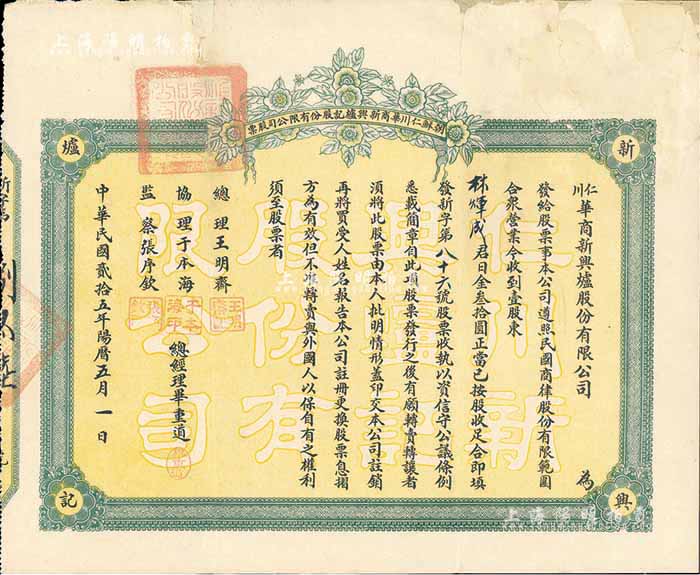 朝鮮仁川華商新興爐記股份有限公司股票
新
興
爐
記
仁川華商新興爐股份有限公司 為
發給股票事本公司遵照民國商律股份有限範圍
合衆營業今收到壹股東
林煇成君日金叁拾圓正當已按股收足合即填
發新字第八十六號股票收執以資信守公議條例
悉載簡章自此項股票發行之後有願轉賣轉讓者
須將此股票由本人批明情形蓋印交本公司註銷
再將買受人姓名報告本公司註冊更換股票息摺
方為有效但不準轉賣與外國人以保自有之權利
須至股票者
總理王明齋
協理于本海 總經理畢重道
監察張序欽
中華民國貳拾五年陽曆五月一日
仁川新
興爐記
股份有
限公司